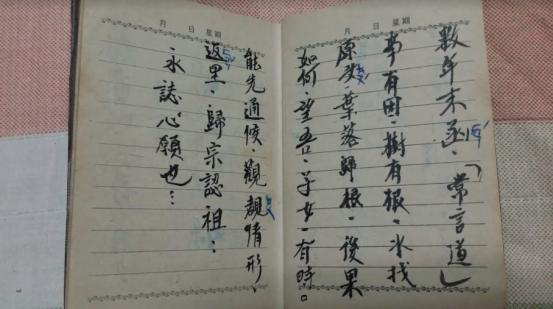 月 日 星期
數年未函.「常言道」
事有因.樹有根.水找
原头.葉落歸根.後果
如何.望吾.子女.有時。
月 日 星期
能先通候.觀情形.
返里.歸宗認祖:
永誌心願也…